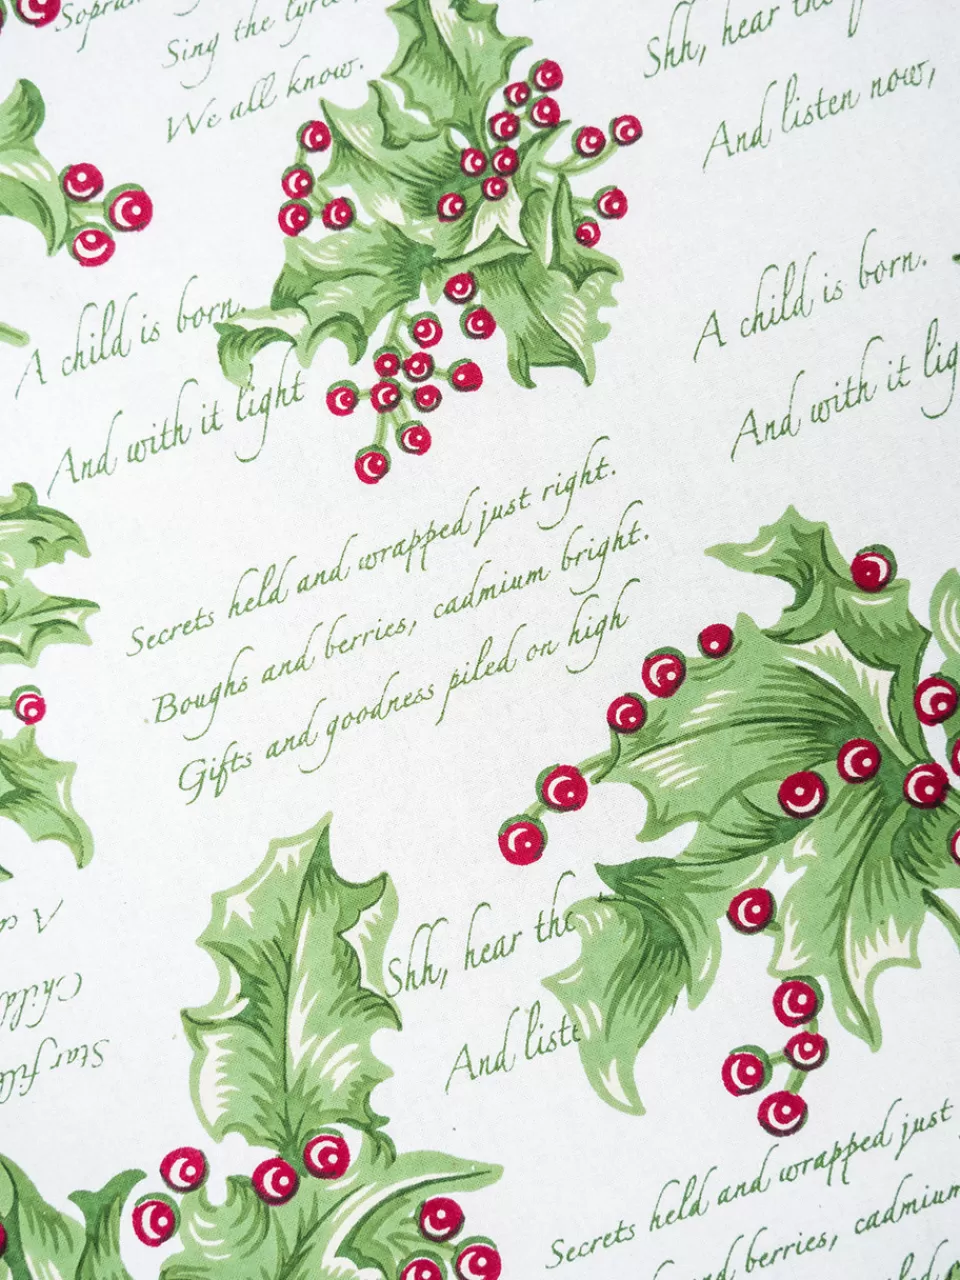 Sing the lyric
We all know.
Shh, hear the
And listen now,
A child is born.
And with it light
A child is born.
And with it lig
Secrets held and wrapped just right.
Boughs and berries, cadmium bright.
Gifts and goodness piled on high
Shh, hear the
And liste
A c
Child
Star fill
Secrets held and wrapped just
and berries, cadmium